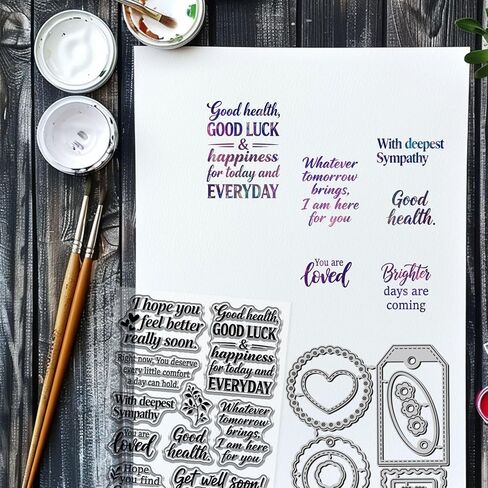 Good health,
GOOD LUCK
&
happiness
for today and
EVERYDAY
Whatever
tomorrow
brings,
I am here
for you
With deepest
Sympathy
Good
health.
You are
loved
Brighter
days are
coming
I hope you
feel better
really soon.
Right now, You deserve
every little comfort
a day can hold.
With deepest
Sympathy
You are
loved
Good
health.
Hope
you find
Good health,
GOOD LUCK
&
happiness
for today and
EVERYDAY
Whatever
tomorrow
brings,
I am here
for you
Get well soon!